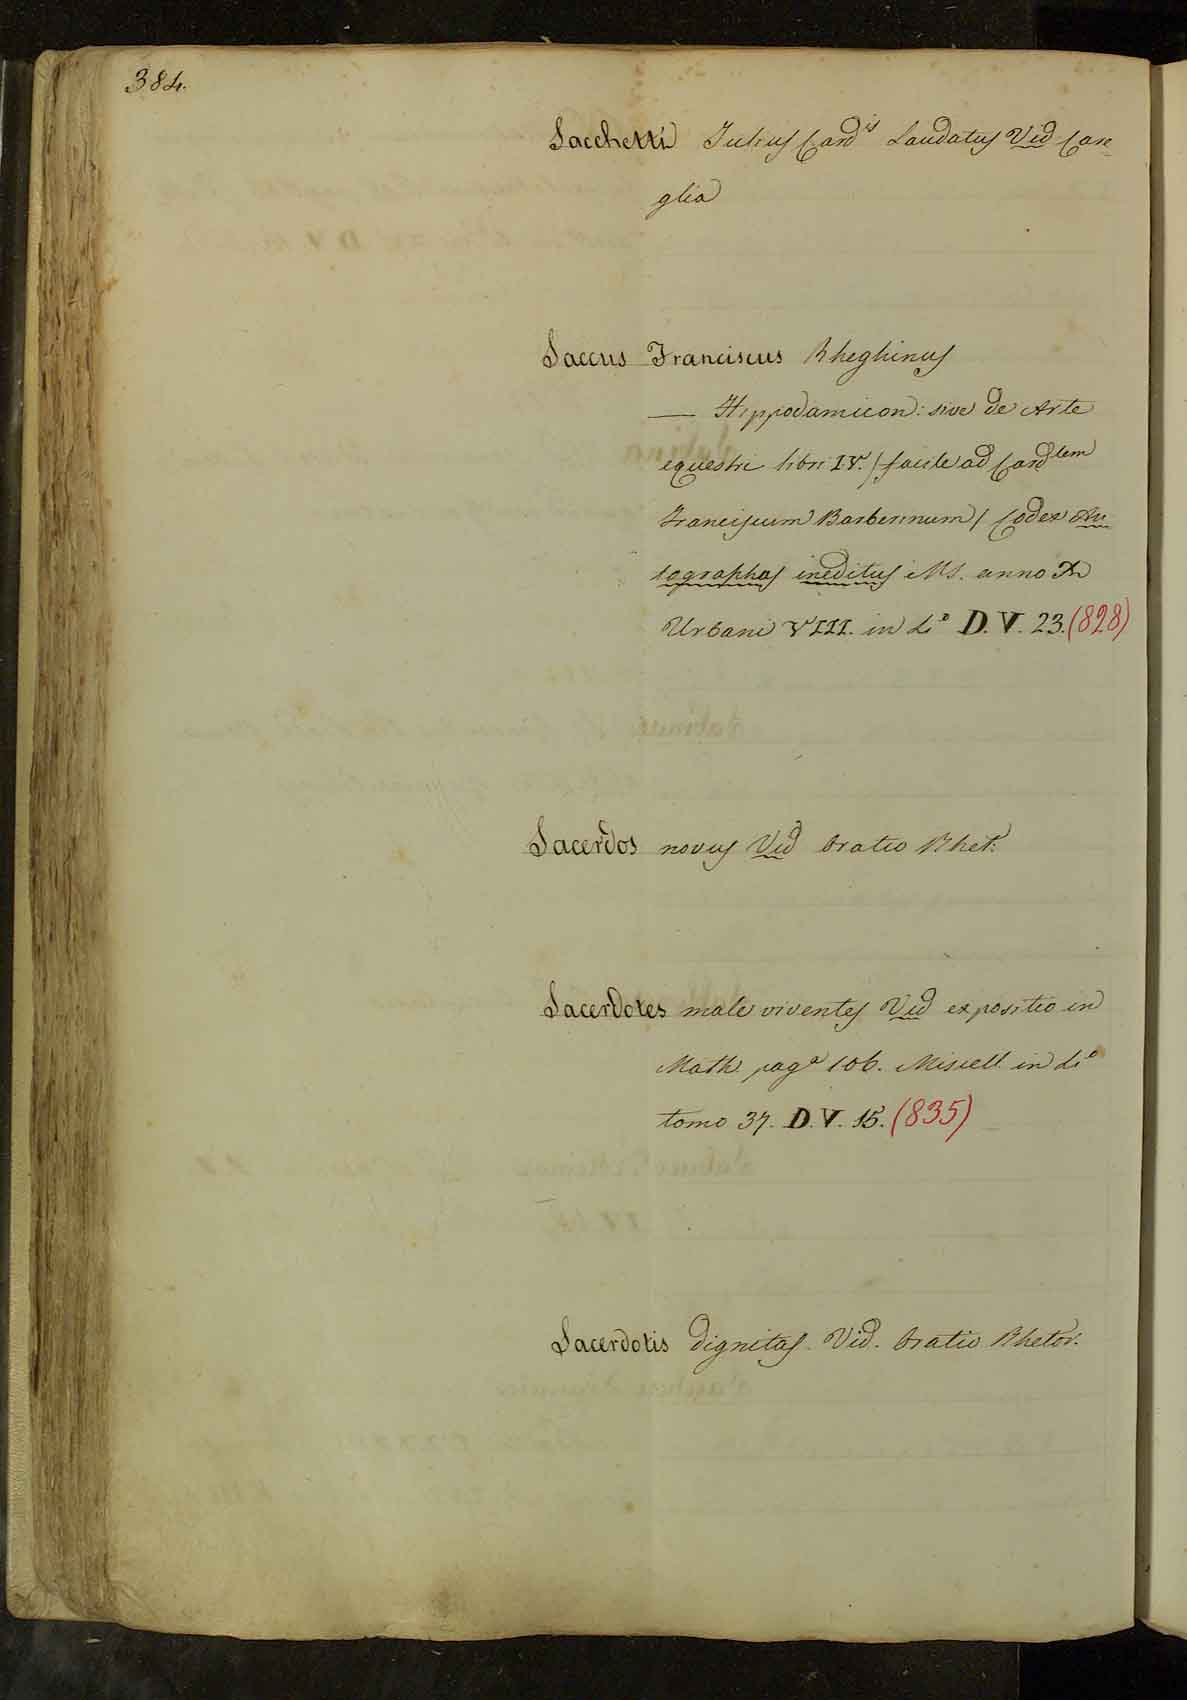 384.
Sacchetti Julius Card.is Laudatus Vid Car-
glia
Saccus Franciscus Rheghinus
— Hippodamicon: sive de Arte
equestri libri IV. / facile ad Cardlem
Franciscum Barberinum / Codex Au-
tographus ineditus MS. anno
Urbani VIII. in fio D. V. 23. (828)
Sacerdos novus Vid Oratio Rhet:
Sacerdotes male viventes Vid expositio in
Math. paga 106. Miscell. in fio
tomo 37. D. V. 15. (835)
Sacerdotis dignitas. Vid. Oratio Rhetor.